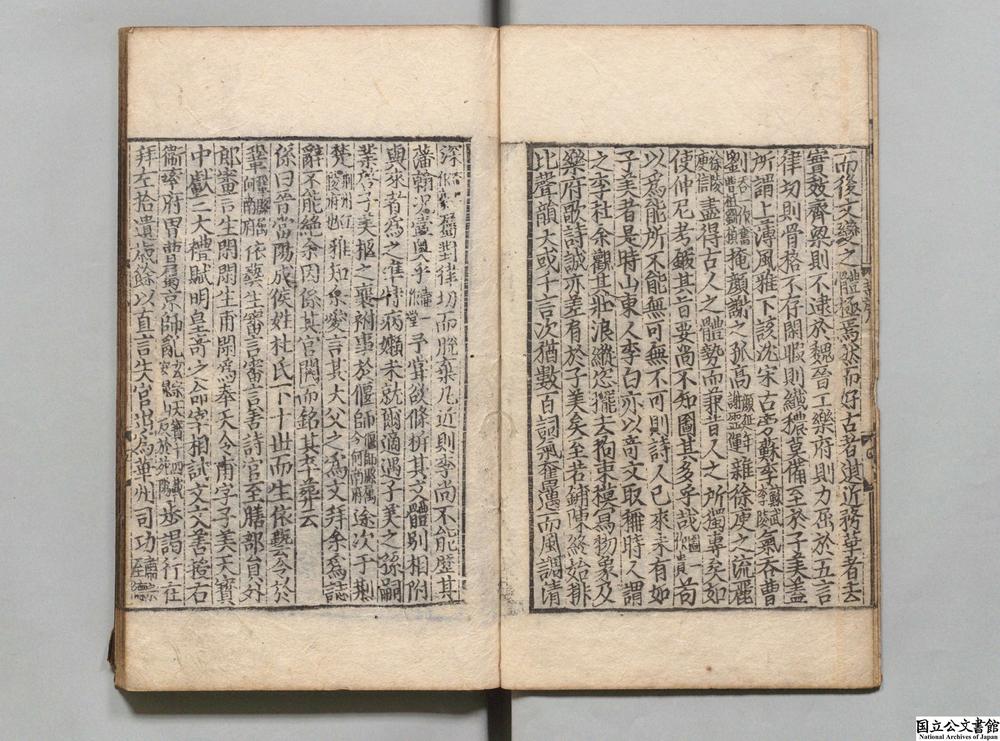 而後文變之體極焉然而好古者遺近務華者去
實效齊梁則不逮於魏晉工樂府則力屈於五言
律切則骨格不存閑暇則纖穠莫備至於子美蓋
所謂上薄風雅下該沈宋古旁蘇李蘇武李陵氣吞曹
劉吞一作奪曹植劉楨掩顔謝之孤高顔延年謝靈運雜徐庾之流麗
徐陵庾信盡得古人之體勢而兼昔人之所獨專矣如
使仲尼考鍛其旨要尚不知圖其多乎哉圖一作貴苟
以爲能所不能無可無不可則詩人已來未有如
子美者是時山東人李白亦以竒文取稱時人謂
之李杜余觀其壯浪縱恣擺去拘束模寫物象及
樂府歌詩誠亦差有於子美矣至若鋪陳終始排
比聲韻大或千言次猶數百詞氣奮邁而風調清
深屬對律切而脫棄凡近則李尚不能歷其
藩翰况壼奥乎藩一作堂予甞欲條析其文體別相附
與來者爲之准特病懶未就爾適遇子美之孫嗣
業啓子美柩之襄祔事於偃師偃師縣屬今河南府途次于荆
楚荆州江陵府也雅知余愛言其大父之爲文拜余爲誌
辭不能絶余因係其官閥而銘其卒葬云
係曰昔當陽成侯姓杜氏下十世而生依藝令於
鞏鞏縣屬河南府依藝生審言審言善詩官至膳部員外
郎審言生閑閑生甫閑爲奉天令甫字子美天寳
中獻三大禮賦明皇竒之命宰相試文文善授右
衞率府胄曹屬京師亂玄宗天寳十四載反於范陽步謁行在
拜左拾遺歲餘以直言失官出爲華州司功肅宗至德
国立公文書館
National Archives of Japan